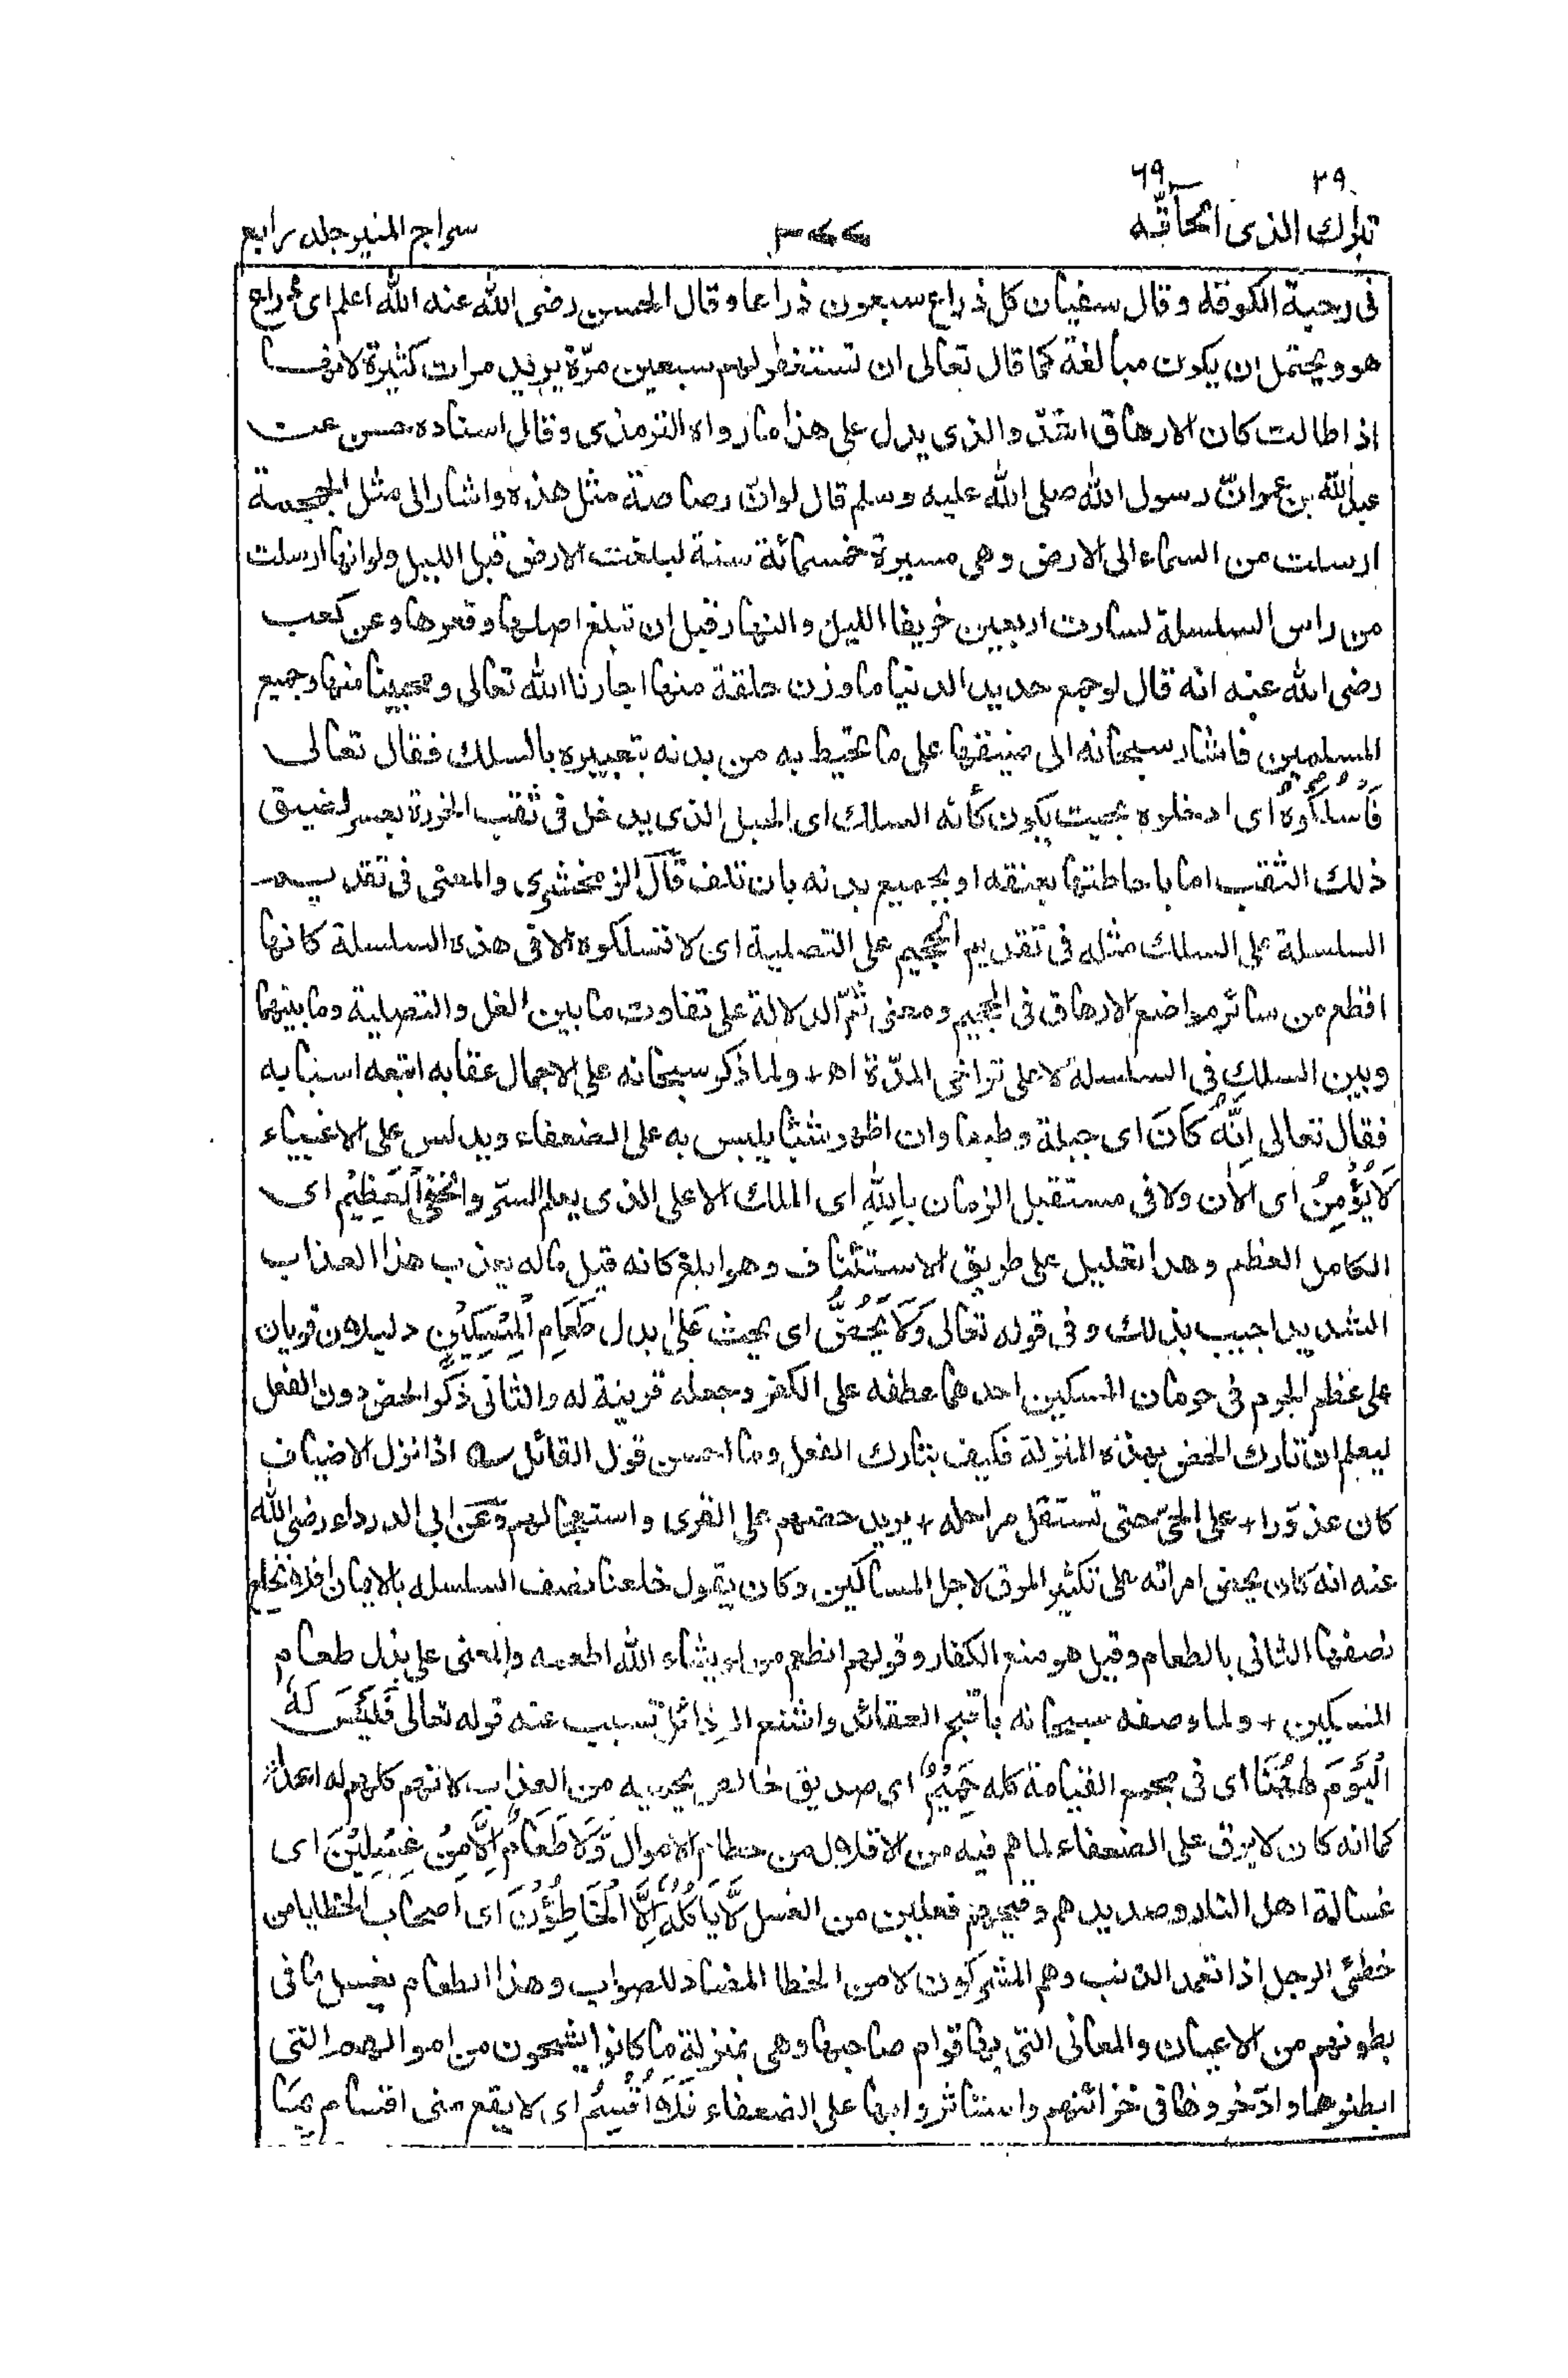 ٢٩ ٦٩
تبارك الذى الحآقّه ٣٧٧ سراج المنير جلد رابع
فى رحبة الكوفه وقال سفيان كل ذراع سبعون ذراعا وقال الحسن رضى الله عنه الله اعلم اى ذراع
هو ويحتمل ان يكون مبالغة كما قال تعالى ان تستغفر لهم سبعين مرّة يريد مرات كثيرة لانها
اذا طالت كان الارهاق اشدّ والذى يدل على هذا ما رواه الترمذى وقال اسناده حسن عن
عبد الله بن عمر وانّ رسول الله صلى الله عليه وسلم قال لو انّ رصاصة مثل هذه واشار الى مثل الجمجمة
ارسلت من السماء الى الارض وهى مسيرة خمسمائة سنة لبلغت الارض قبل الليل ولو انها ارسلت
من راس السلسلة لسارت اربعين خريفا الليل والنهار قبل ان تبلغ اصلها وقعرها وعن كعب
رضى الله عنه انه قال لو جمع حديد الدنيا ما وزن حلقة منها اجارنا الله تعالى ومحبينا منها وجميع
المسلمين فاشار سبحانه الى ضيقها على ما تحيط به من بدنه بتعبيره بالسلك فقال تعالى
فَاسْلُكُوْهُ اى ادخلوه بحيث يكون كأنه السلك اى الحبل الذى يدخل فى ثقب الخرزة بعسر لضيق
ذلك الثقب اما باحاطتها بعنقه او بجميع بدنه بان تلف قال الزمخشرى والمعنى فى تقديم
السلسلة على السلك مثله فى تقديم الجحيم على التصلية اى لا تسلكوه الا فى هذه السلسلة كانها
افظع من سائر مواضع الارهاق فى الجحيم ومعنى ثمّ الدلالة على تفاوت ما بين الغل والتصلية وما بينهما
وبين السلك فى السلسلة لا على تراخى المدّة اه + ولما ذكر سبحانه على الاجمال عقابه اتبعه اسبابه
فقال تعالى اِنَّهٗ كَانَ اى جبلة وطبعا وان اظهر شيئا يلبس به على الضعفاء ويدلس على الاغبياء
لَا يُؤْمِنُ اى الاٰن ولا فى مستقبل الزمان بِاللّٰهِ اى الملك الاعلى الذى يعلم السرّ واخفى الْعَظِيْمِ اى
الكامل العظم وهذا تعليل على طريق الاستئناف وهو ابلغ كانه قيل ماله يعذب هذا العذاب
الشديد اجيب بذلك وفى قوله تعالى وَلَا يَحُضُّ اى يحث عَلٰى بدل طَعَامِ الْمِسْكِيْنِ دليلان قويان
على عظم الجرم فى حرمان المسكين احدهما عطفه على الكفر وجعله قرينة له والثانى ذكر الحض دون الفعل
ليعلم ان تارك الحض بهذه المنزلة فكيف بتارك الفعل وما احسن قول القائل اذا نزل الاضياف
كان عذوّرا + على الحىّ حتى تستقل مراجله + يريد حضهم على القرى واستعجالهم وعن ابى الدرداء رضى الله
عنه انه كان يحض امراته على تكثير المرق لاجل المساكين وكان يقول خلعنا نصف السلسله بالايمان افلا نخلع
نصفها الثانى بالطعام وقيل هو منع الكفار وقولهم انطعم من لو يشاء الله اطعمه والمعنى على بذل طعام
المسكين + ولما وصفه سبحانه باقبح العقائد واشنع الرذائل تسبب عنه قوله تعالى فَلَيْسَ لَهُ
الْيَوْمَ هٰهُنَا اى فى مجمع القيامة كله حَمِيْمٌ اى صديق خالص يحميه من العذاب لانهم كلهم له اعداء
كما انه كان لا يرق على الضعفاء لما هم فيه من الاقلال من حطام الاموال وَّلَا طَعَامٌ اِلَّا مِنْ غِسْلِيْنَ اى
غسالة اهل النار وصديدهم وقيحهم فعلين من الغسل لَّا يَاْكُلُهٗ اِلَّا الْخَاطِـُٔوْنَ اى اصحاب الخطايا من
خطئ الرجل اذا تعمد الذنب وهم المشركون لا من الخطا المضاد للصواب وهذا الطعام يغسل ما فى
بطونهم من الاعيان والمعانى التى بها قوام صاحبها وهى بمنزلة ما كانوا يشحون من اموالهم التى
ابطنوها وادّخروها فى خزائنهم واستاثروا بها على الضعفاء فَلَا اُقْسِمُ اى لا يقع منى اقسام بما